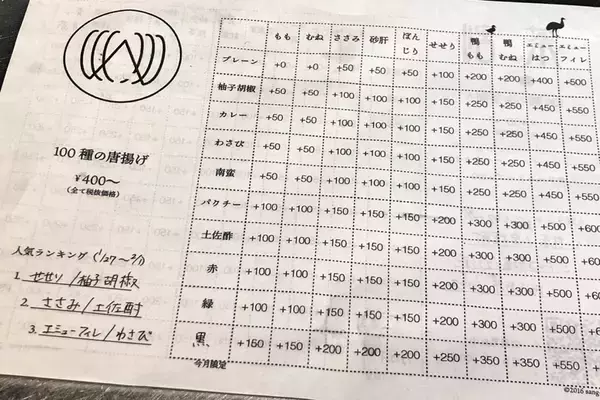 100種の唐揚げ
¥400〜
(全て税抜価格)
人気ランキング (1/27〜2/1)
1. せせり/柚子胡椒
2. ささみ/土佐酢
3. エミューフィレ/わさび
もも むね ささみ 砂肝 ぼんじり せせり 鴨もも 鴨むね エミューはつ エミューフィレ
プレーン +0 +0 +50 +50 +50 +100 +200 +200 +400 +500
柚子胡椒 +50 +50 +100 +100 +100 +150 +250 +250 +450 +550
カレー +50 +50 +100 +100 +100 +150 +250 +250 +450 +550
わさび +50 +50 +100 +100 +100 +150 +250 +250 +450 +550
南蜜 +50 +50 +100 +100 +100 +150 +250 +250 +450 +550
パクチー +100 +100 +150 +150 +150 +200 +300 +300 +500 +600
土佐酢 +100 +100 +150 +150 +150 +200 +300 +300 +500
赤 +100 +100 +150 +150 +150 +200 +300 +300 +500
緑 +100 +100 +150 +150 +150 +200 +300 +300 +500
黒 +150 +150 +200 +200 +200 +250 +350 +350 +550
今月限定
©2016